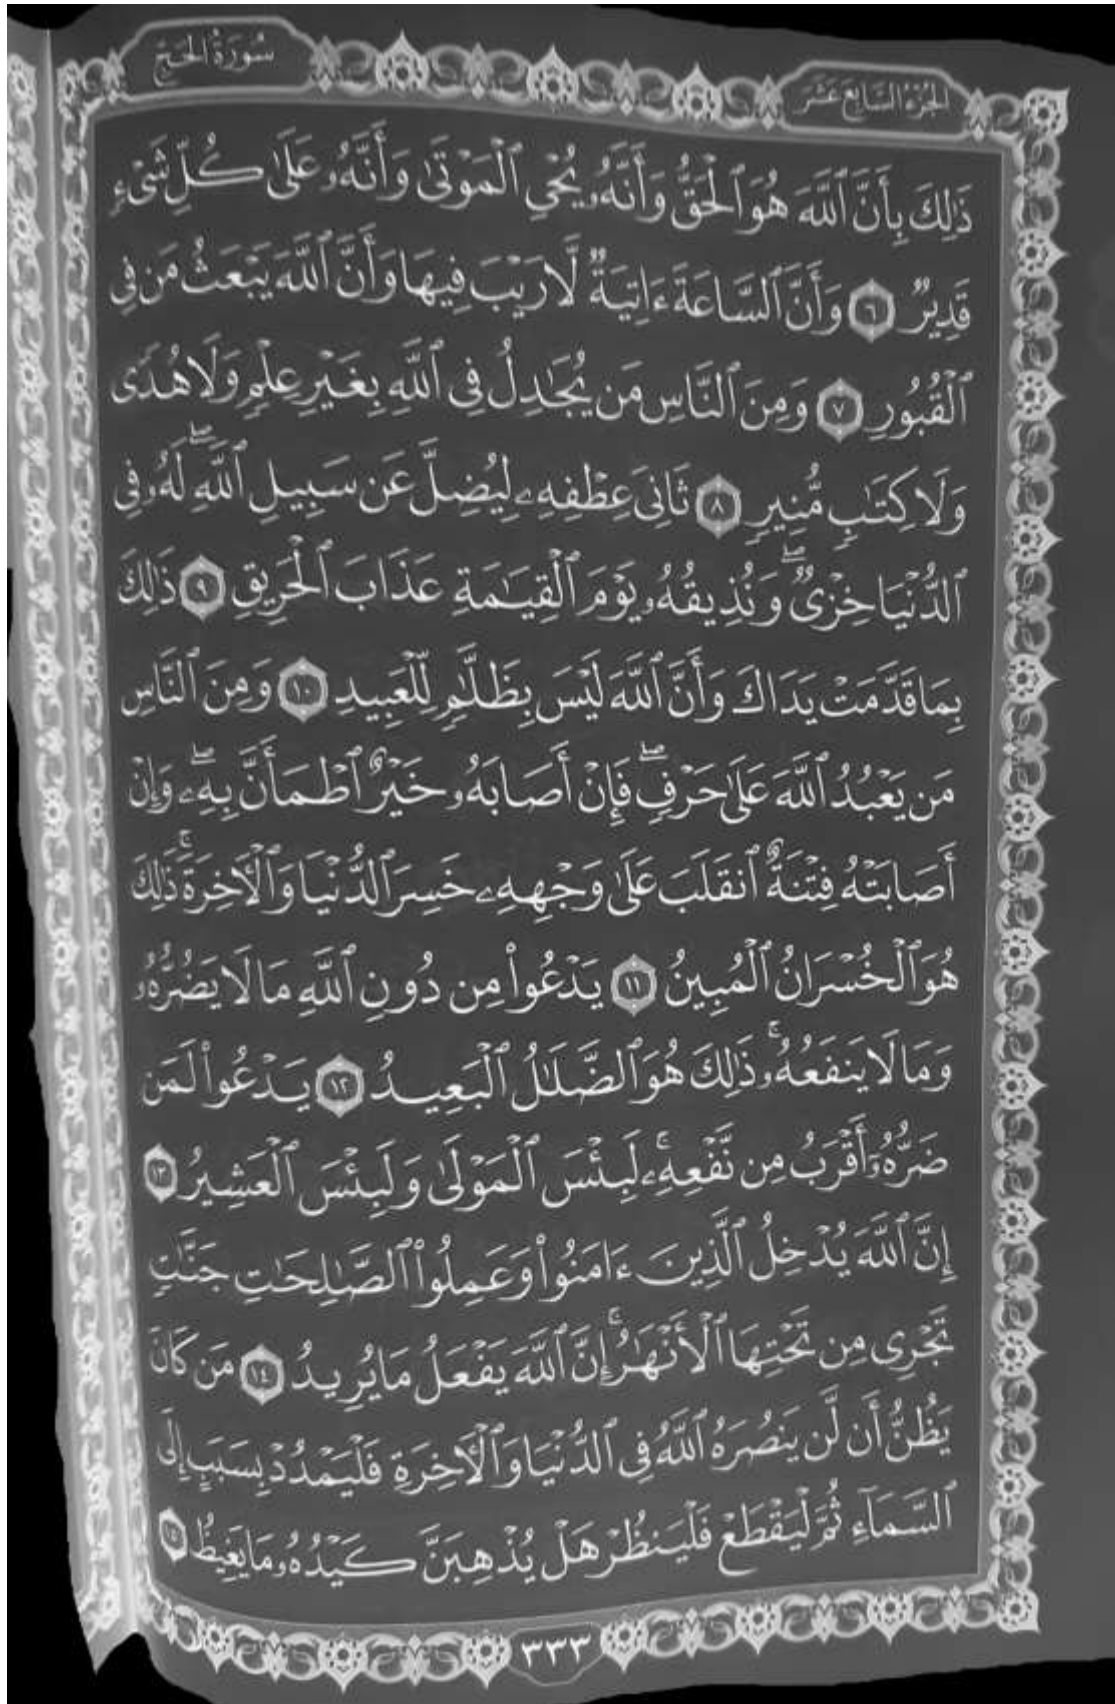 الجُزْءُ السَّابِعَ عَشَرَ
سُورَةُ الحَجِّ
ذَٰلِكَ بِأَنَّ ٱللَّهَ هُوَ ٱلْحَقُّ وَأَنَّهُۥ يُحْيِ ٱلْمَوْتَىٰ وَأَنَّهُۥ عَلَىٰ كُلِّ شَىْءٍ
قَدِيرٌ ٦ وَأَنَّ ٱلسَّاعَةَ ءَاتِيَةٌ لَّا رَيْبَ فِيهَا وَأَنَّ ٱللَّهَ يَبْعَثُ مَن فِى
ٱلْقُبُورِ ٧ وَمِنَ ٱلنَّاسِ مَن يُجَٰدِلُ فِى ٱللَّهِ بِغَيْرِ عِلْمٍ وَلَا هُدًى
وَلَا كِتَٰبٍ مُّنِيرٍ ٨ ثَانِىَ عِطْفِهِۦ لِيُضِلَّ عَن سَبِيلِ ٱللَّهِۖ لَهُۥ فِى
ٱلدُّنْيَا خِزْىٌۖ وَنُذِيقُهُۥ يَوْمَ ٱلْقِيَٰمَةِ عَذَابَ ٱلْحَرِيقِ ٩ ذَٰلِكَ
بِمَا قَدَّمَتْ يَدَاكَ وَأَنَّ ٱللَّهَ لَيْسَ بِظَلَّٰمٍ لِّلْعَبِيدِ ١٠ وَمِنَ ٱلنَّاسِ
مَن يَعْبُدُ ٱللَّهَ عَلَىٰ حَرْفٍۖ فَإِنْ أَصَابَهُۥ خَيْرٌ ٱطْمَأَنَّ بِهِۦۖ وَإِنْ
أَصَابَتْهُ فِتْنَةٌ ٱنقَلَبَ عَلَىٰ وَجْهِهِۦ خَسِرَ ٱلدُّنْيَا وَٱلْأَخِرَةَۚ ذَٰلِكَ
هُوَ ٱلْخُسْرَانُ ٱلْمُبِينُ ١١ يَدْعُوا۟ مِن دُونِ ٱللَّهِ مَا لَا يَضُرُّهُۥ
وَمَا لَا يَنفَعُهُۥۚ ذَٰلِكَ هُوَ ٱلضَّلَٰلُ ٱلْبَعِيدُ ١٢ يَدْعُوا۟ لَمَن
ضَرُّهُۥٓ أَقْرَبُ مِن نَّفْعِهِۦۚ لَبِئْسَ ٱلْمَوْلَىٰ وَلَبِئْسَ ٱلْعَشِيرُ ١٣
إِنَّ ٱللَّهَ يُدْخِلُ ٱلَّذِينَ ءَامَنُوا۟ وَعَمِلُوا۟ ٱلصَّٰلِحَٰتِ جَنَّٰتٍ
تَجْرِى مِن تَحْتِهَا ٱلْأَنْهَٰرُۚ إِنَّ ٱللَّهَ يَفْعَلُ مَا يُرِيدُ ١٤ مَن كَانَ
يَظُنُّ أَن لَّن يَنصُرَهُ ٱللَّهُ فِى ٱلدُّنْيَا وَٱلْأَخِرَةِ فَلْيَمْدُدْ بِسَبَبٍ إِلَى
ٱلسَّمَآءِ ثُمَّ لْيَقْطَعْ فَلْيَنظُرْ هَلْ يُذْهِبَنَّ كَيْدُهُۥ مَا يَغِيظُ ١٥
٣٣٣